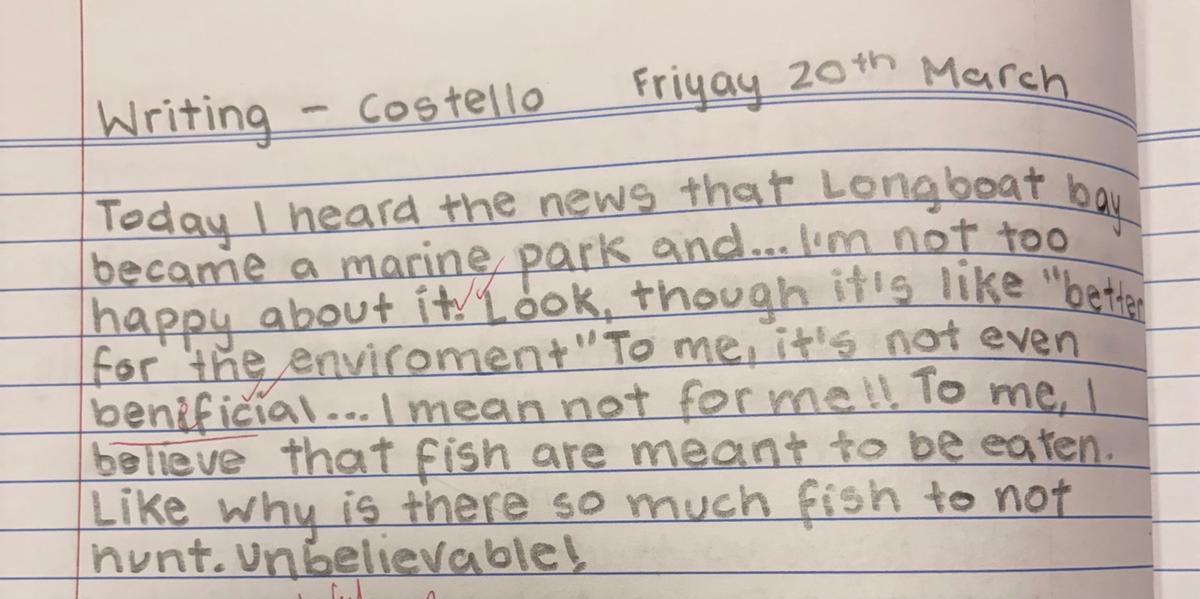 Writing - Costello Friyay 20th March
Today I heard the news that Longboat bay
became a marine park and... I'm not too
happy about it. Look, though it's like "better
for the enviroment" To me, it's not even
beneficial... I mean not for me!! To me, I
believe that fish are meant to be eaten.
Like why is there so much fish to not
hunt. Unbelievable!